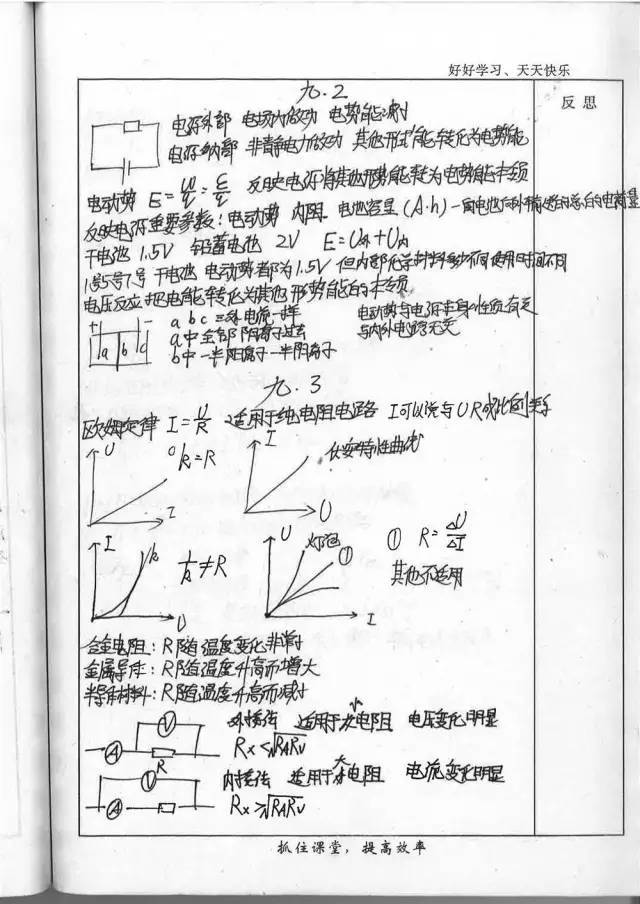 好好学习、天天快乐
反思
九.2
电源外部 电场力做功 电势能减少
电源内部 非静电力做功 其他形式能转化为电势能
电动势 E=W/q 反映电源将其他形势能转为电势能本领
反映电源重要参数:电动势 内阻 电池容量(A·h)
干电池 1.5V 铅蓄电池 2V E=U外+U内
1号5号7号 干电池 电动势都为1.5V 但内部化学材料多少不同使用时间不同
电压反应把电能转化为其他形势能的本领
+ -
a b c
a b c 三处电流一样
a中全部阴离子过去
b中一半阳离子一半阴离子
电动势与电源本身性质有关
与内外电路无关
九.3
欧姆定律 I=U/R 适用于纯电阻电路 I可以说与U R成比例关系
U
I
k=R
I
U
伏安特性曲线
I
U
k
1/k≠R
U
I
灯泡
①
① R=ΔU/ΔI
其他不适用
合金电阻:R随温度变化非常小
金属导体:R随温度升高而增大
半导体材料:R随温度升高而减小
V
A
R
外接法 适用于小电阻 电压变化明显
Rx<√RARV
V
A
内接法 适用于大电阻 电流变化明显
Rx>√RARV
抓住课堂,提高效率